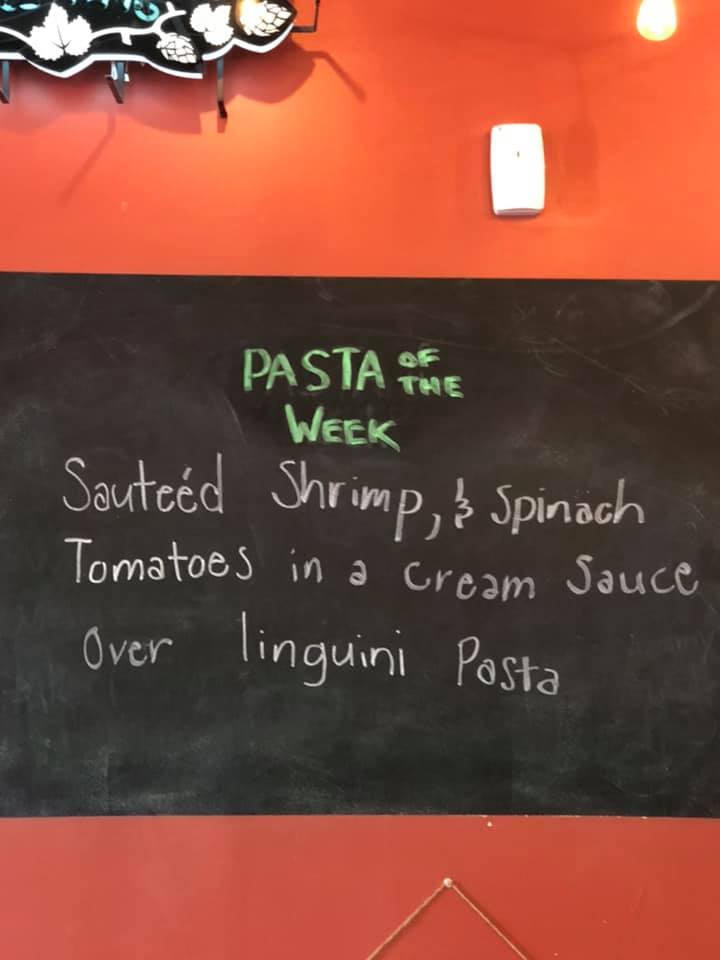 PASTA OF
THE
WEEK
Sauteéd Shrimp, & Spinach
Tomatoes in a cream Sauce
Over linguini Pasta